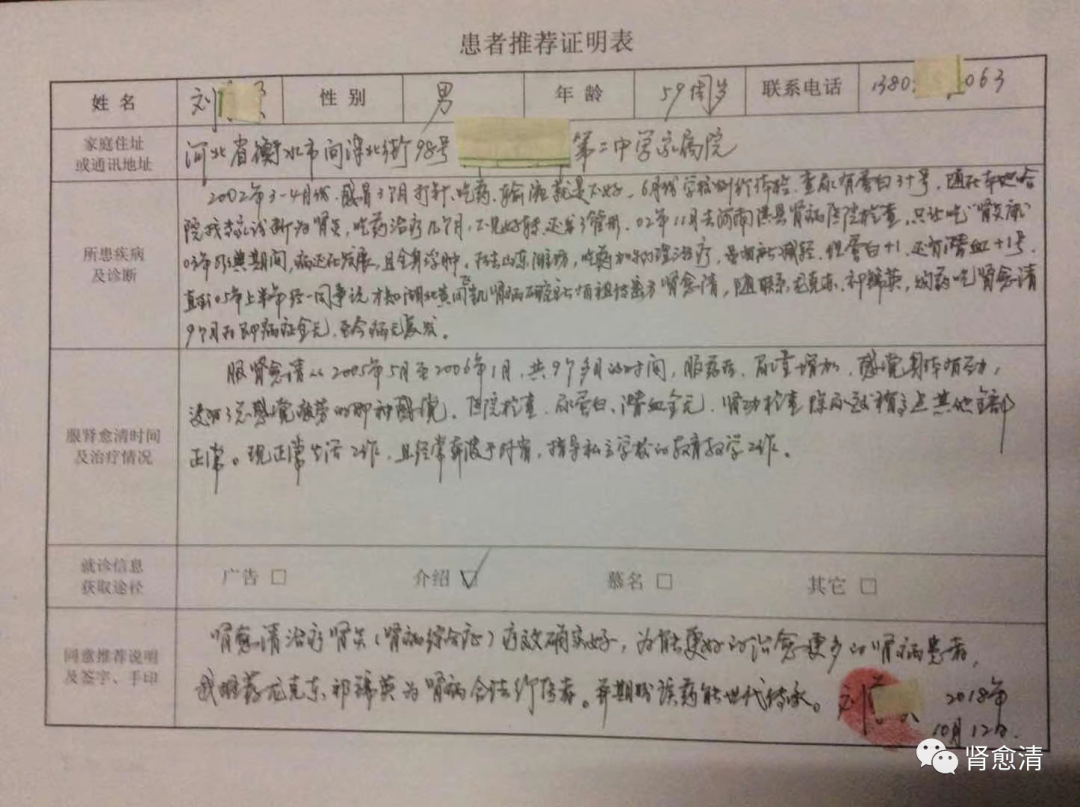 患者推荐证明表
姓名 刘 性别 男 年龄 59周岁 联系电话 1380 063
家庭住址
或通讯地址
河北省衡水市 北街98号 第二中学家属院
所患疾病
及诊断
2002年3-4月份,感冒3个月打针、吃药、输液就是不好,6月份学校组织体检,查尿有蛋白3+号,随在 哈
院找 诊断为肾炎,吃药治疗几个月,不见好转,还是 。02年11月去河南 县肾病医院检查,只让吃"肾炎 "
03年 期间,病还在发展,且全身浮肿。 去山东潍坊,吃药加 治疗, 减轻,但蛋白+1,还有潜血+1号
直到05年上半年经一同事说才知湖北黄冈 肾病研究 有祖传秘方肾愈清,随联系龙克东、祁锦英, 药吃肾愈清
9个月后 病症全无,至今病无复发。
服肾愈清时间
及治疗情况
服肾愈清从2005年5月至2006年1月,共9个多月的时间,服药后,尿量增加,感觉身体有劲,
没有了总感觉疲劳的那种感觉。医院检查,尿蛋白、潜血全无,肾功检查除 稍高点其他全部
正常。现正常生活工作,且经常奔波于外省,指导私立学校的教育教学工作。
就诊信息
获取途径
广告 □ 介绍 ☑ 慕名 □ 其它 □
同意推荐说明
及签字、手印
肾愈清治疗肾炎(肾病综合症)疗效确实好,为能更好的治愈更多的肾病患者,
我推荐龙克东、祁锦英为肾病合法 传者。并期盼该药能世代传承。 刘 2018年
10月12日.
肾愈清